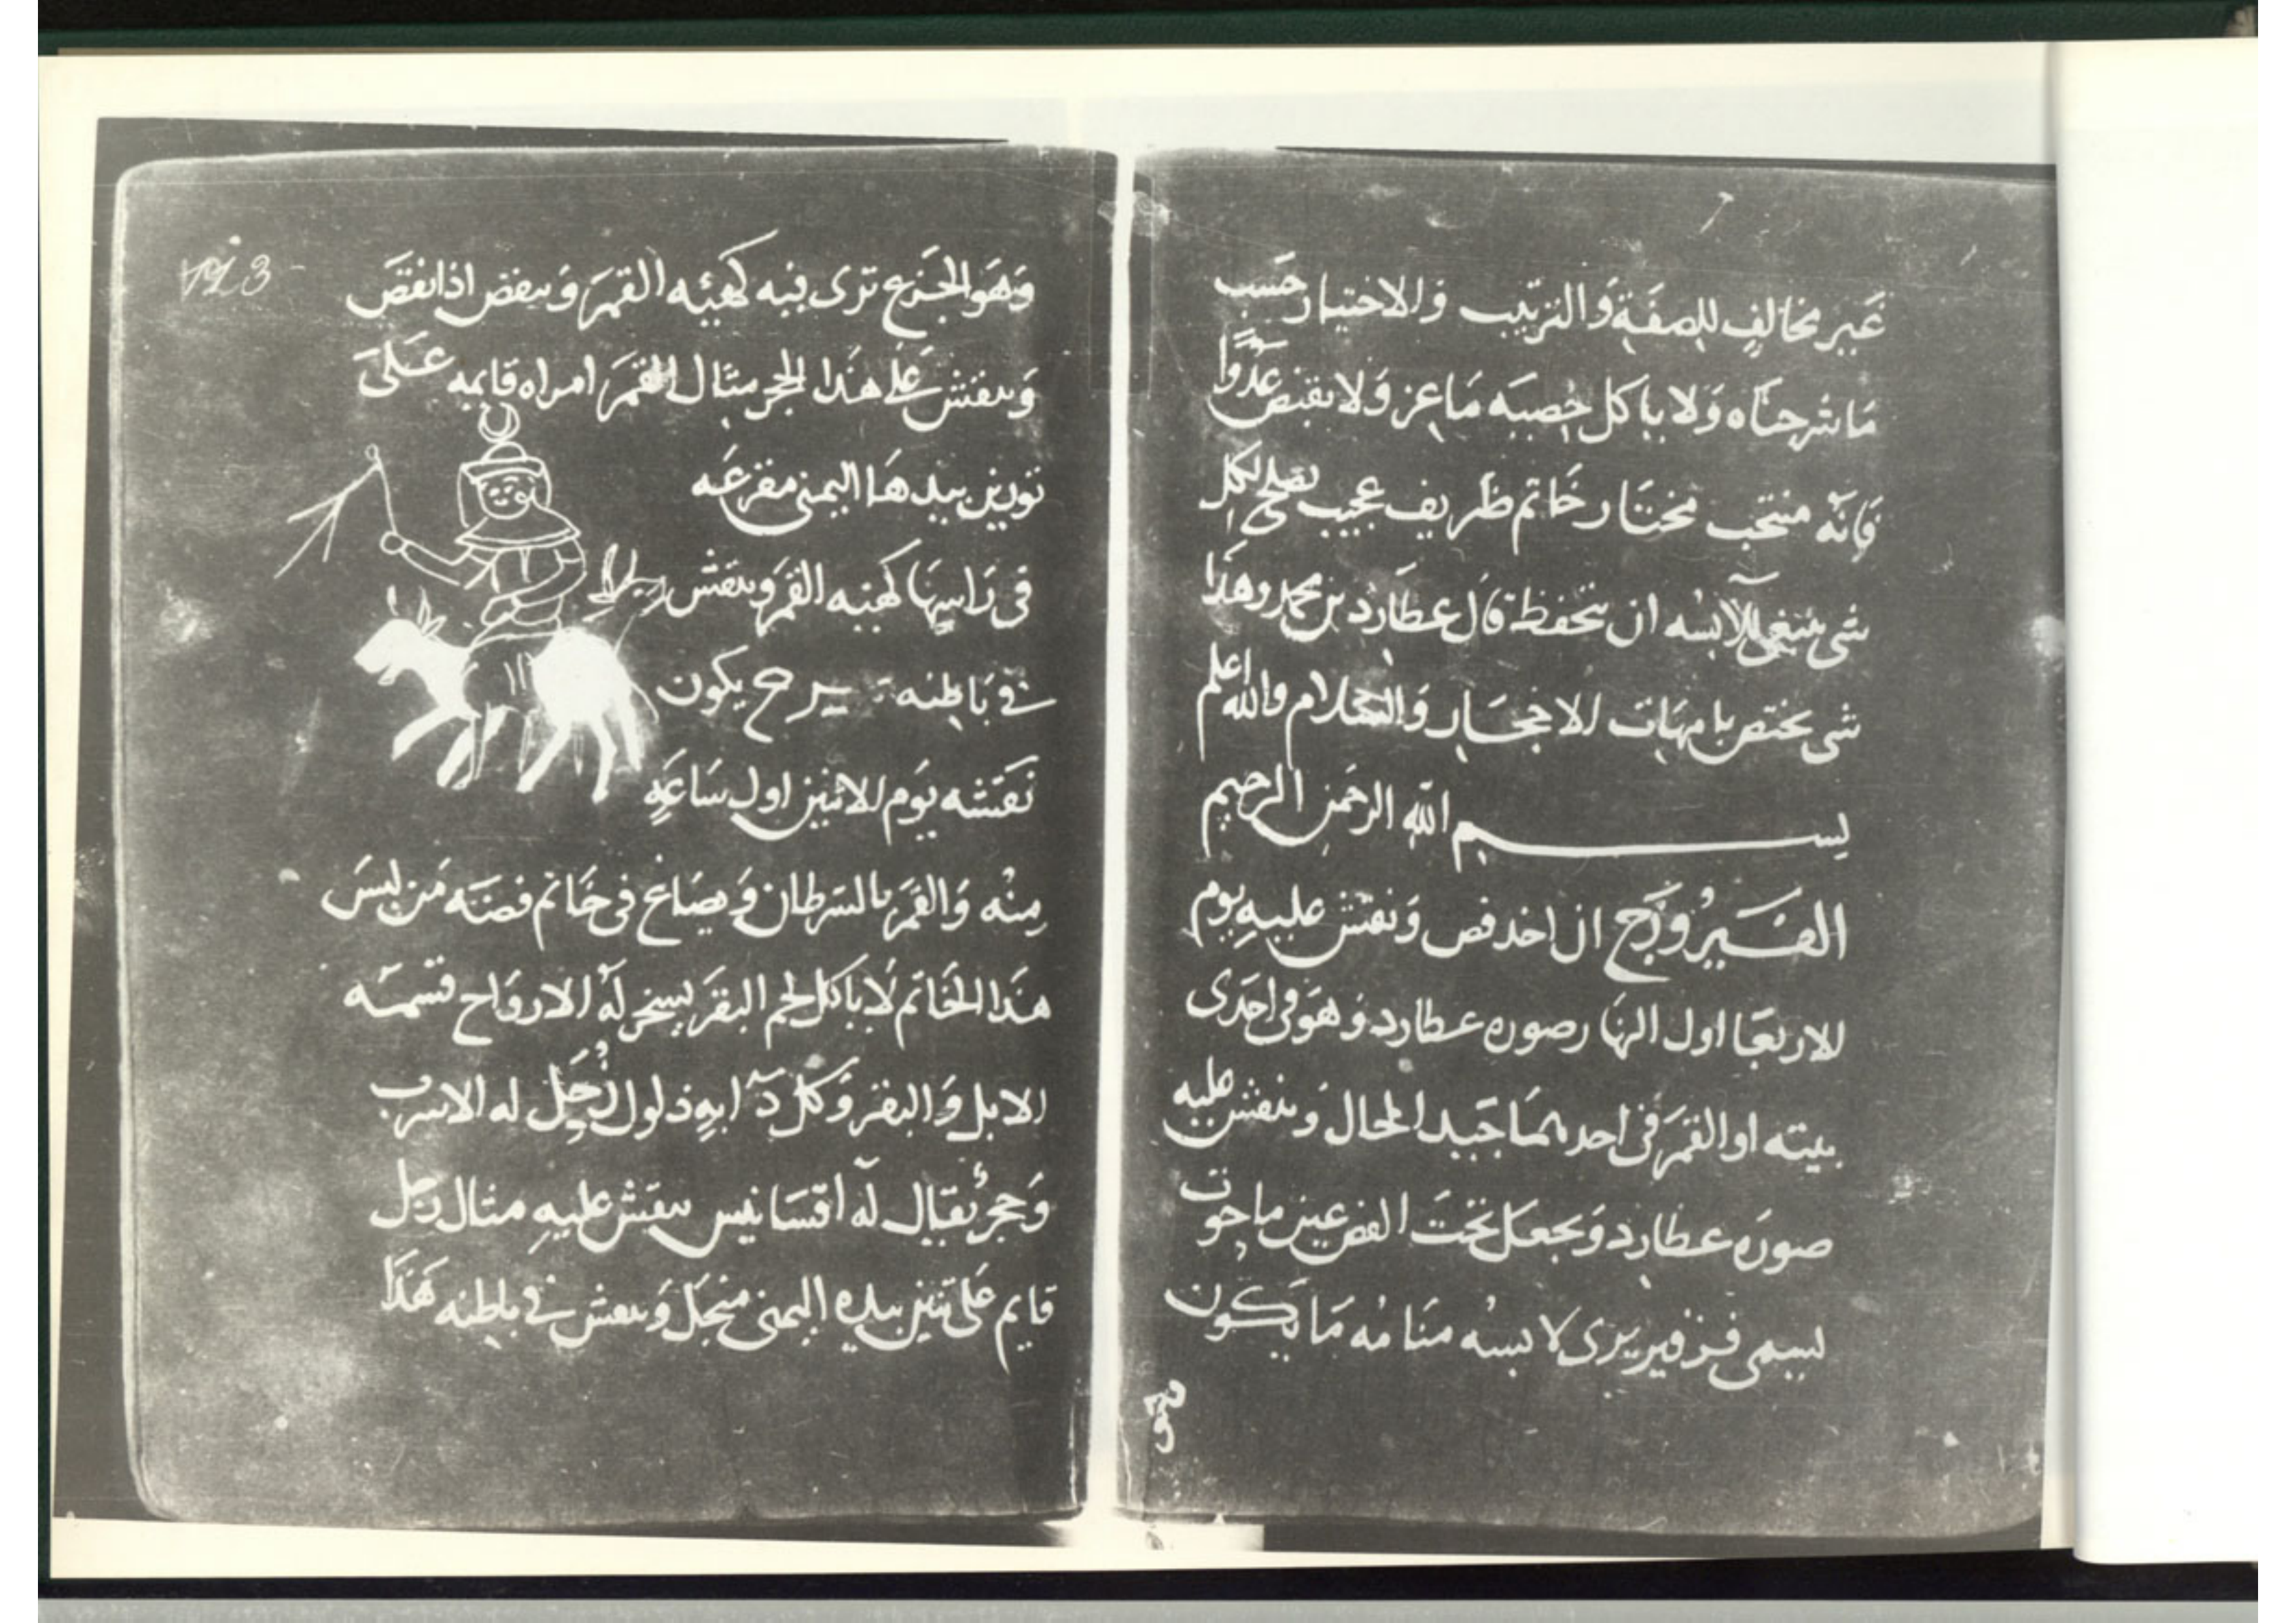 غير مخالف للصفة والترتيب والاختيار حسب
ما شرحناه ولا ياكل خصيه ماعز ولا يقبض عدوا
فانه منتخب مختار خاتم ظريف عجيب يصلح لكل
شي ينبغي للابسه ان يتحفظ قال عطارد بن محمد وهذا
شي يختص بامهات الاحجار والسلام والله اعلم
بسم الله الرحمن الرحيم
الفيروزج ان اخد فص ونقش عليه يوم
الاربعا اول النهار صوره عطارد وهو في احدى
بيته او القمر في احدهما جيد الحال وينقش عليه
صوره عطارد ويجعل تحت الفص عين ما حوت
يسمى يرى لابسه منامه ما يكون
وهو الجزع ترى فيه كهيئه القمر وينقص اذا نقص
وينقش على هذا الحجر مثال القمر امراه قايمه على
ثورين بيدها اليمنى مقرعه
في راسها كهيئه القمر وينقش
في باطنه يكون
نقشه يوم الاثنين اول ساعه
منه والقمر بالسرطان ويصاغ في خاتم فضه من لبس
هذا الخاتم لا ياكل لحم البقر يسخر له الارواح قسمه
الابل والبقر وكل دابه ذلول زحل له الاسرب
وحجر يقال له ينقش عليه مثال رجل
قايم على تنين بيده اليمنى منجل وينقش في باطنه هذا